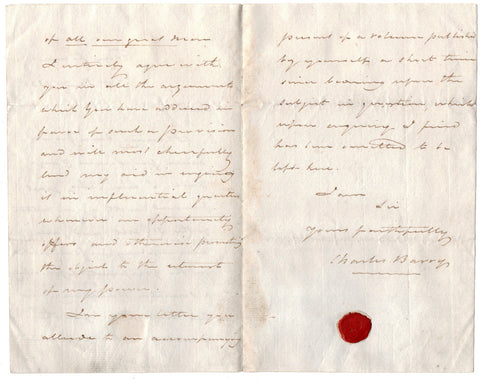 of all our great men
I entirely agree with
you in all the arguments
which you have adduced in
favor of such a provision
and will most cheerfully
lend my aid in urging
it in influential quarters
whenever an opportunity
offers and otherwise promoting
the object to the utmost
of my power.
In your letter you
allude to an accompanying
present of a volume published
by yourself a short time
since bearing upon the
subject in question, which
upon enquiry I find
has been omitted to be
left here.
I am
Sir
Yours faithfully
Charles Barry